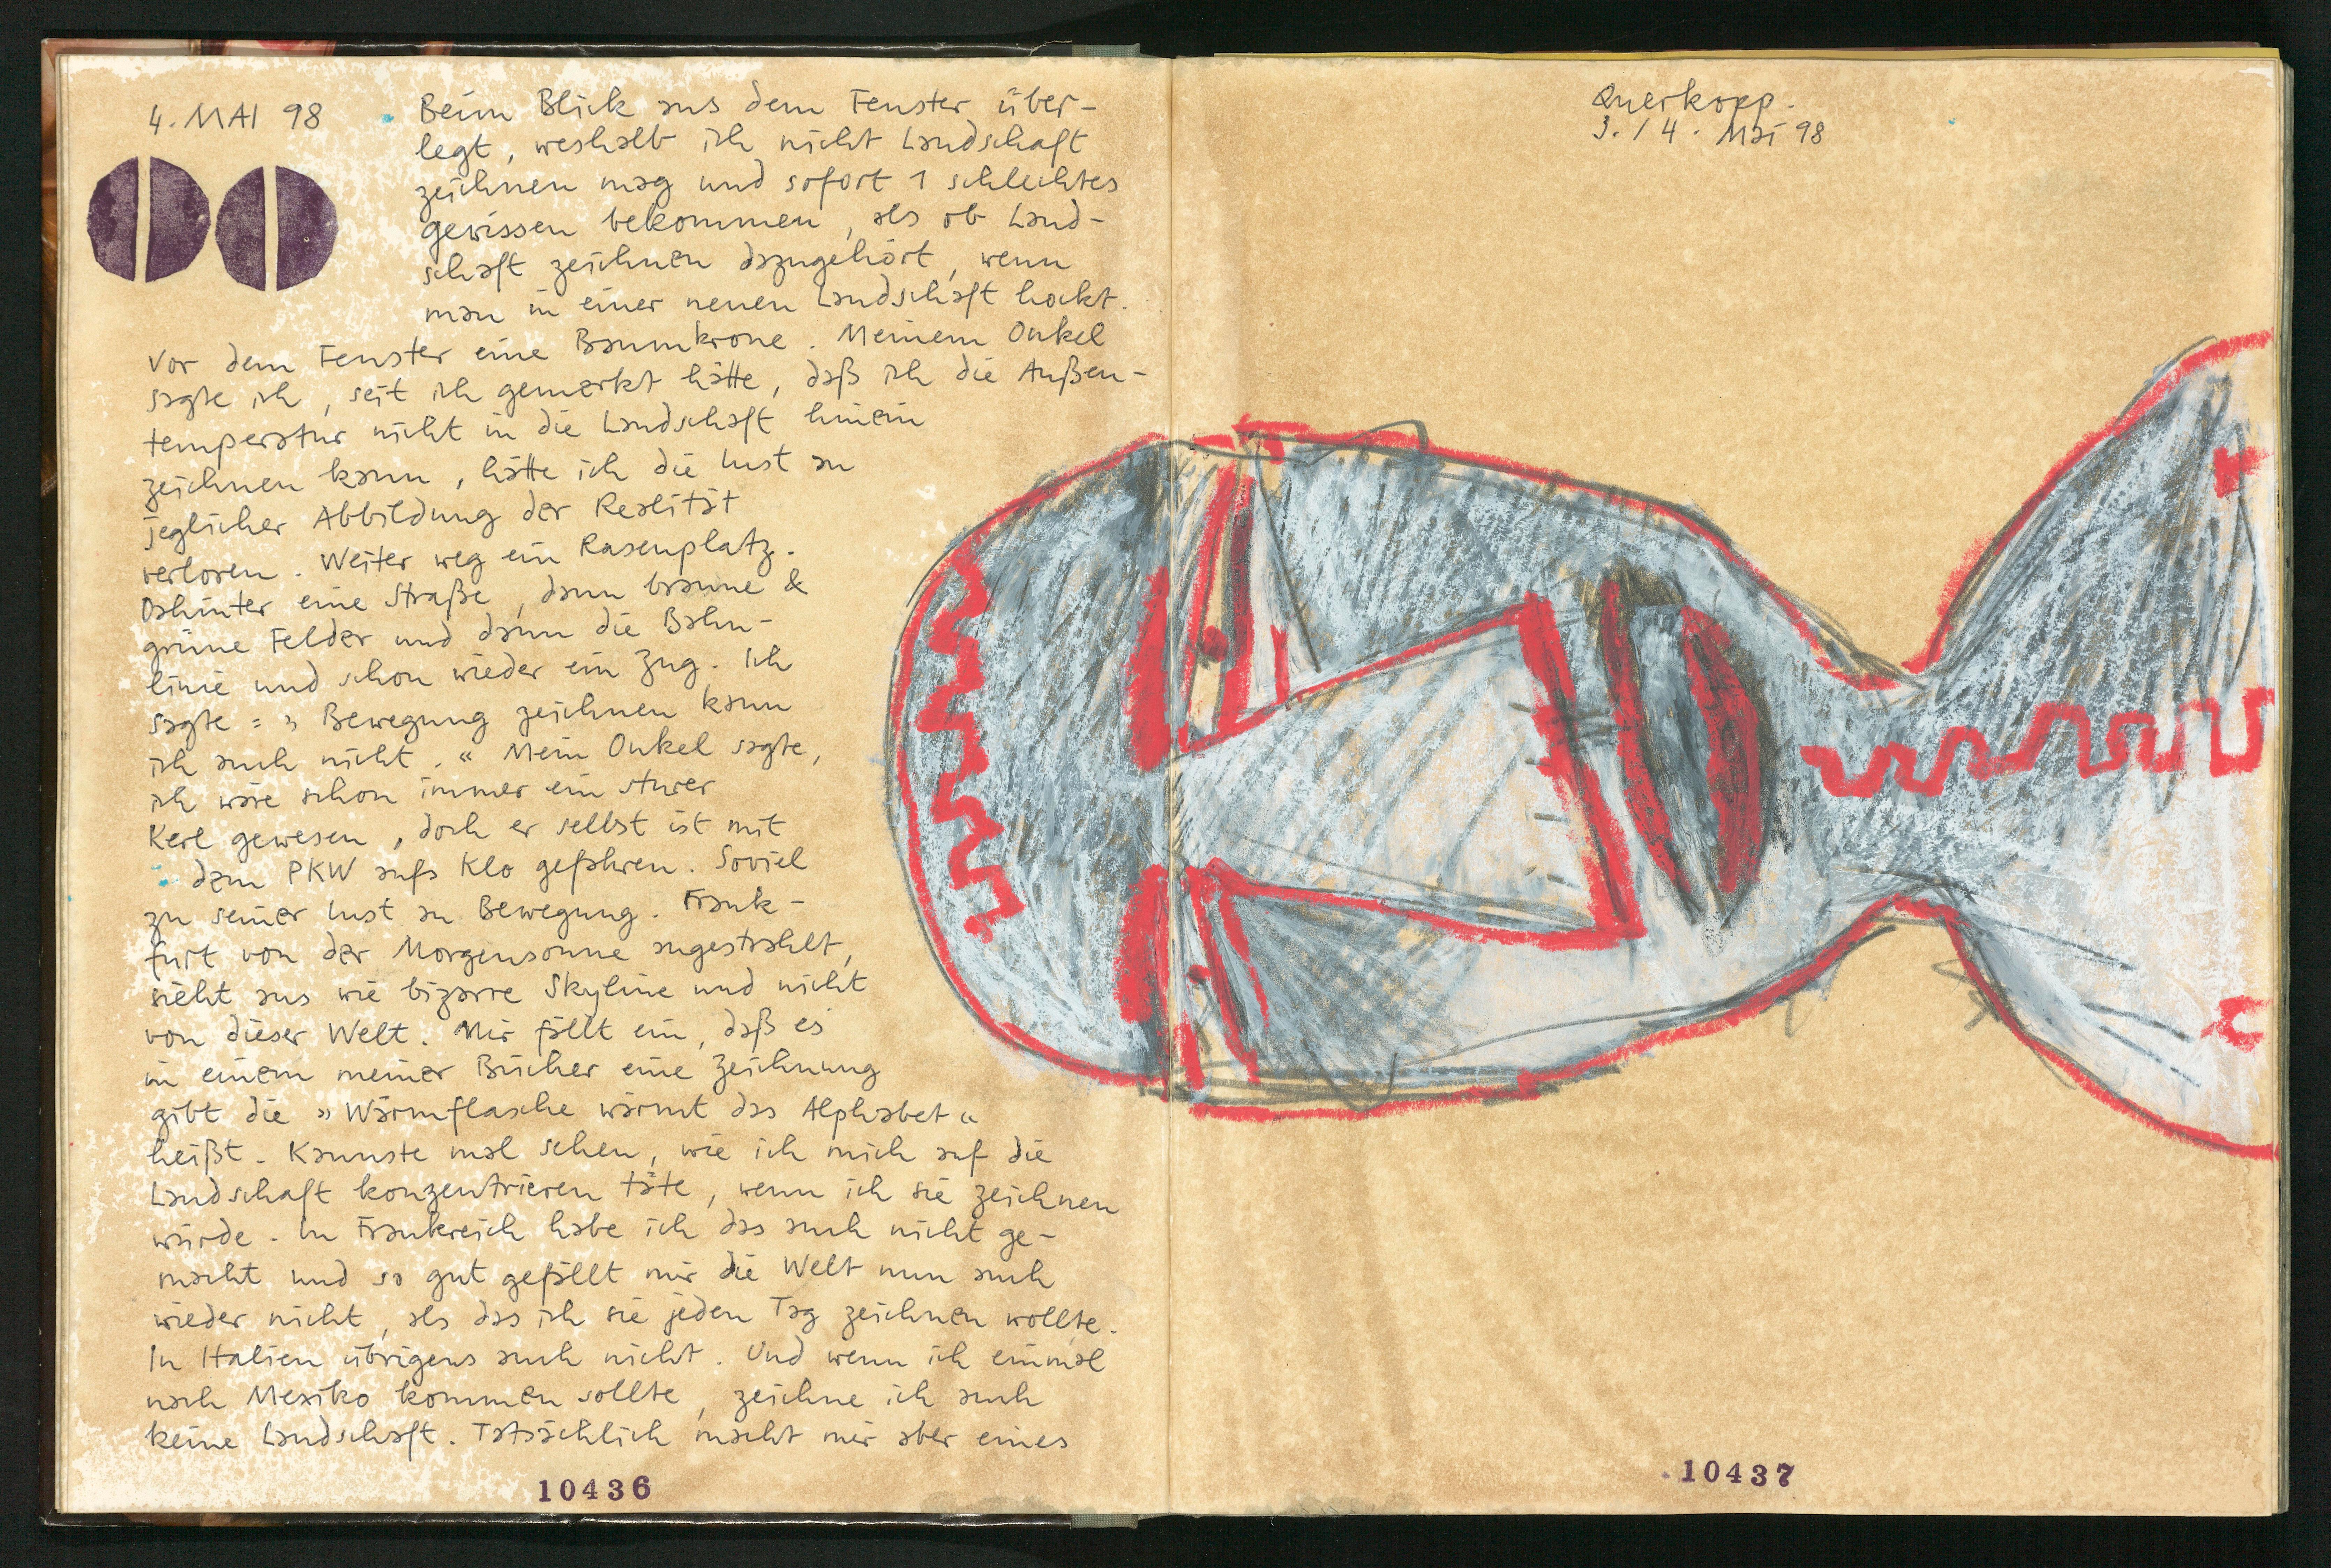 4. MAI 98
Beim Blick aus dem Fenster über-
legt, weshalb ich nicht Landschaft
zeichnen mag und sofort 1 schlechtes
gewissen bekommen, als ob Land-
schaft zeichnen dazugehört, wenn
man in einer neuen Landschaft hockt.
Vor dem Fenster eine Baumkrone. Meinem Onkel
sagte ich, seit ich gemerkt hätte, daß ich die Außen-
temperatur nicht in die Landschaft hinein
zeichnen kann, hätte ich die Lust an
jeglicher Abbildung der Realität
verloren. Weiter weg ein Rasenplatz.
Dahinter eine Straße, dann braune &
grüne Felder und dann die Bahn-
linie und schon wieder ein Zug. Ich
sagte: » Bewegung zeichnen kann
ich auch nicht.« Mein Onkel sagte,
ich wäre schon immer ein sturer
Kerl gewesen, doch er selbst ist mit
dem PKW aufs Klo gefahren. Soviel
zu seiner Lust an Bewegung. Frank-
furt von der Morgensonne angestrahlt,
sieht aus wie bizarre Skyline und nicht
von dieser Welt. Mir fällt ein, daß es
in einem meiner Bücher eine Zeichnung
gibt die » Wärmflasche wärmt das Alphabet «
heißt. Kannste mal sehen, wie ich mich auf die
Landschaft konzentrieren täte, wenn ich sie zeichnen
würde. In Frankreich habe ich das auch nicht ge-
macht und so gut gefällt mir die Welt nun auch
wieder nicht, als das ich sie jeden Tag zeichnen wollte.
In Italien übrigens auch nicht. Und wenn ich einmal
nach Mexiko kommen sollte, zeichne ich auch
keine Landschaft. Tatsächlich macht mir aber eines
10436
Querkopp.
3. / 4. Mai 98
10437